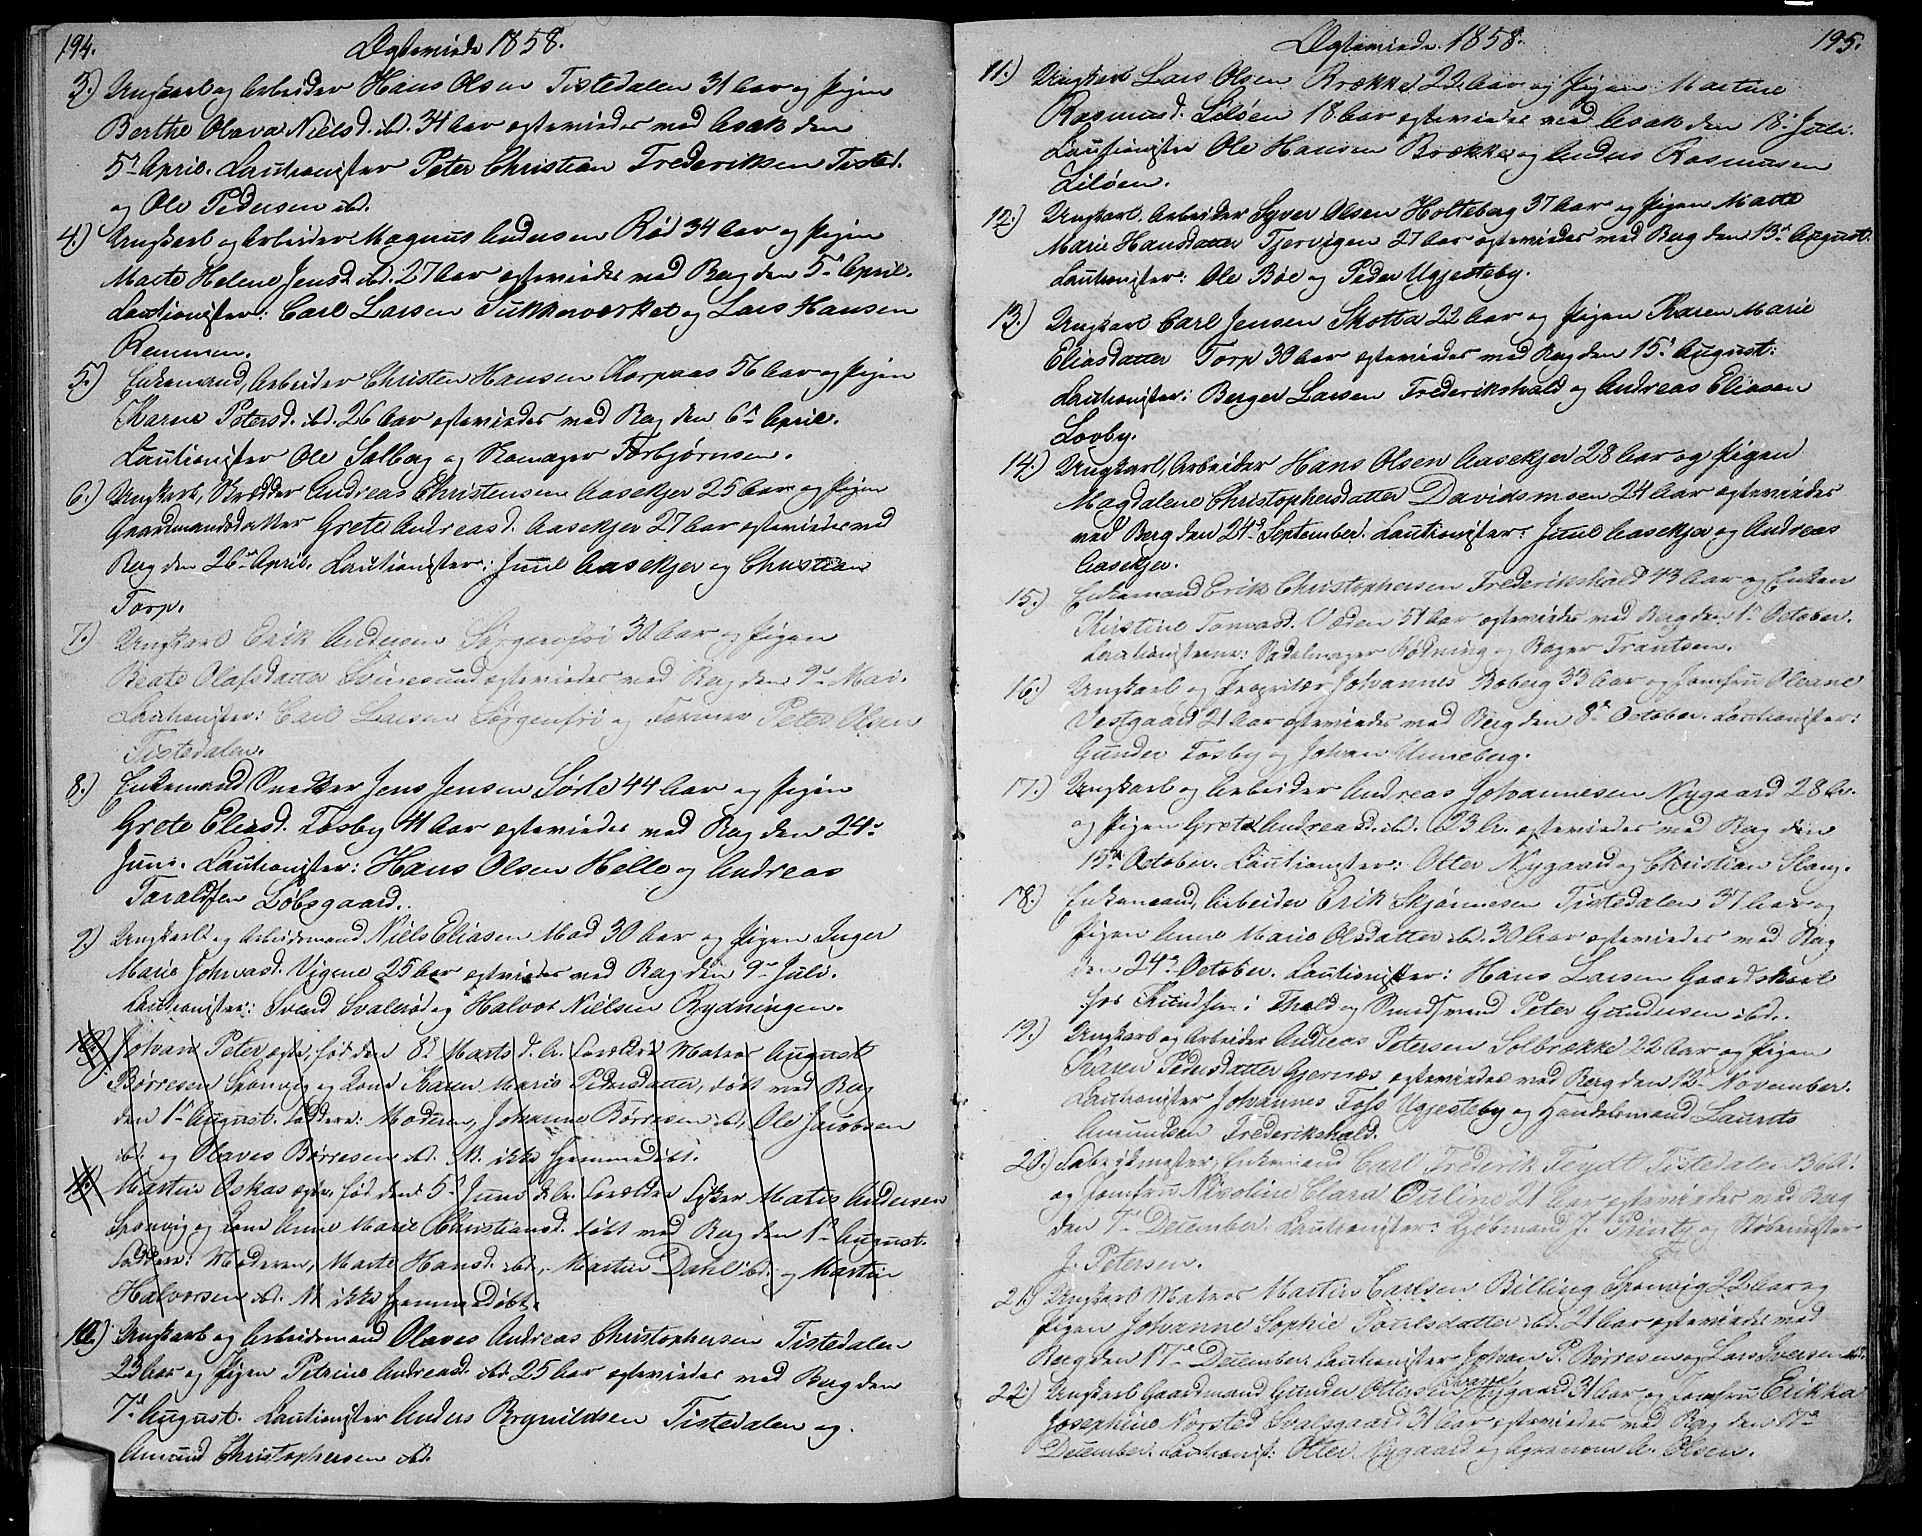 194.
Ægteviede 1858.
3.) Ungkarl og Arbeider Hans Olsen Tistedalen 31 Aar og Pigen
Berthe Olava Nielsd. ibd. 34 Aar ægteviedes ved Asak den
5te April. Cautionister Peter Christian Frederiksen Tisted.
og Ole Pedersen ibd.
4.) Ungkarl og Arbeider Magnus Andersen Rød 34 Aar og Pigen
Marte Helene Jensd. ibd. 27 Aar ægteviedes ved Berg den 5te April.
Cautionister: Carl Larsen Sukkerværket og Lars Hansen
Remmen.
5.) Enkemand, Arbeider Christen Hansen Korpaas 56 Aar og Pigen
Karen Petersd. ibd. 26 Aar ægteviedes ved Berg den 6te April.
Cautionister Ole Solberg og Skomager Torbjørnsen.
6.) Ungkarl, Skrædder Andreas Christensen Aasekjer 25 Aar og Pigen
Gaardmandsdatter Grete Andreasd. Aasekjer 27 Aar ægteviedes ved
Berg den 26de April. Cautionister: Juul Aasekjer og Christian
Torp.
7.) Ungkarl Erik Andersen Sørgenfri 30 Aar og Pigen
Beate Olafsdatter Svinesund ægteviedes ved Berg den 9de Mai.
Cautionister: Carl Larsen Sørgenfri og Former Peter Olsen
Tistedalen.
8.) Enkemand Snedker Jens Jensen Sørle 44 Aar og Pigen
Grete Eliasd. Fosby 41 Aar ægteviedes ved Berg den 24de
Juni. Cautionister: Hans Olsen Helle og Andreas
Taraldsen Løbsgaard.
9.) Ungkarl og Arbeidsmand Niels Eliasen Mad 30 Aar og Pigen Inger
Marie Johnasd. Vigene 25 Aar ægteviedes ved Berg den 9de Juli.
Cautionister: Svend Svalerød og Halvor Nielsen Rydningen.
Johan Peter, ægte, fød den 8de Marts d. Aar. Forældre Matros August
Børresen Sponvig og Kone Karen Marie Pedersdatter, døbt ved Berg
den 1ste August. Faddere: Moderen, Johanne Børresen ibd, Ole Jacobsen
ibd. og Olaves Børresen ibd. N. ikke hjemmedøbt.
Martin Oskar ægte, fød den 5te Juni d. Aar. Forældre Matis Andersen
Sponvig og Kone Anne Marie Christiansd. døbt ved Berg den 1ste August.
Faddere: Moderen, Marte Hansd. ibd, Martin Dahl ibd. og Martin
Halvorsen ibd. N. ikke hjemmedøbt.
10.) Ungkarl og Arbeidsmand Olaves Andreas Christophersen Tistedalen
23 Aar og Pigen Petrine Andreasd. ibd. 25 Aar ægteviedes ved Berg den
7de August. Cautionister Anders Brynildsen Tistedalen og
Amund Christophersen ibd.
Ægteviede 1858.
195.
11.) Ungkarl Lars Olsen Brække 22 Aar og Pigen Martine
Rasmusd. Liløen 18 Aar ægteviedes ved Asak den 18de Juli.
Cautionister Ole Hansen Brække og Anders Rasmusen
Liløen.
12.) Ungkarl. Arbeider Syver Olsen Holteberg 37 Aar og Pigen Marte
Marie Hansdatter Tjervigen 27 Aar ægteviedes ved Berg den 13de August.
Cautionister: Ole Bøe og Peder Ugjesteby.
13.) Ungkarl Carl Jensen Skotta 22 Aar og Pigen Karen Marie
Eliasdatter Torp 30 Aar ægteviedes ved Berg den 15de August.
Cautionister: Berger Larsen Frederikshald og Andreas Eliasen
Lovby.
14.) Ungkarl, Arbeider Hans Olsen Aasekjer 28 Aar og Pigen
Magdalene Christophersdatter Davidsmoen 24 Aar ægteviedes
ved Berg den 24de September. Cautionister: Juul Aasekjer og Andreas
Aasekjer.
15.) Enkemand Erik Christophersen Frederikshald 43 Aar og Enken
Kirstine Tomasd. Veden 51 Aar ægteviedes ved Berg den 1ste October.
Cautionisterne: Sadelmager Rødning og Bager Trantsen.
16.) Ungkarl og Proprietær Johannes Boberg 33 Aar og Jomfru Olvane
Vestgaard 21 Aar ægteviedes ved Berg den 8de October. Cautionister:
Gunder Fosby og Johan Unneberg.
17.) Ungkarl og Arbeider Andreas Johannesen Nygaard 28 Ar.
og Pigen Grete Andreasd. ibd. 23 Ar. ægteviedes ved Berg den
15de October. Cautionister: Otter Nygaard og Christian Stang.
18.) Enkemand, Arbeider Erik Skjønnesen Tistedalen 37 Aar og
Pigen Anne Marie Olsdatter ibd. 30 Aar ægteviedes ved Berg
den 24de October. Cautionister: Hans Larsen Gaardskarl
hos Knudsen i Fhald og Smedsvend Peter Gundersen ibd.
19.) Ungkarl og Arbeider Andreas Petersen Solbrække 22 Aar og Pigen
Karen Pedersdatter Gjernæs ægteviedes ved Berg den 12te November.
Cautionister Johannes Foss Ugjesteby og Handelsmand Laurits
Amundsen Frederikshald.
20.) Fabrikmester, Enkemand Carl Frederik Feydt Tistedalen
og Jomfru Nicoline Clara Euline 21 Aar ægteviedes ved Berg
den 7de December. Cautionister: Kjøbmand J. og Støbemester
J. Petersen.
21.) Ungkarl Matros Martin Carlsen Billing Sponvig 22 Aar og
Pigen Johanne Sophie Poulsdatter ibd. 21 Aar ægteviedes ved
Berg den 17de December. Cautionister Johan P. Børresen og Lars Iversen ibd.
22.) Ungkarl Gaardmand Gunder Ottersen Nygaard 31 Aar og Jomfru Erikka
Josephine Norsted Svalsgaard 31 Aar ægteviedes ved Berg den 17de
December. Cautionist: Otter Nygaard og Agronom A. Olsen.